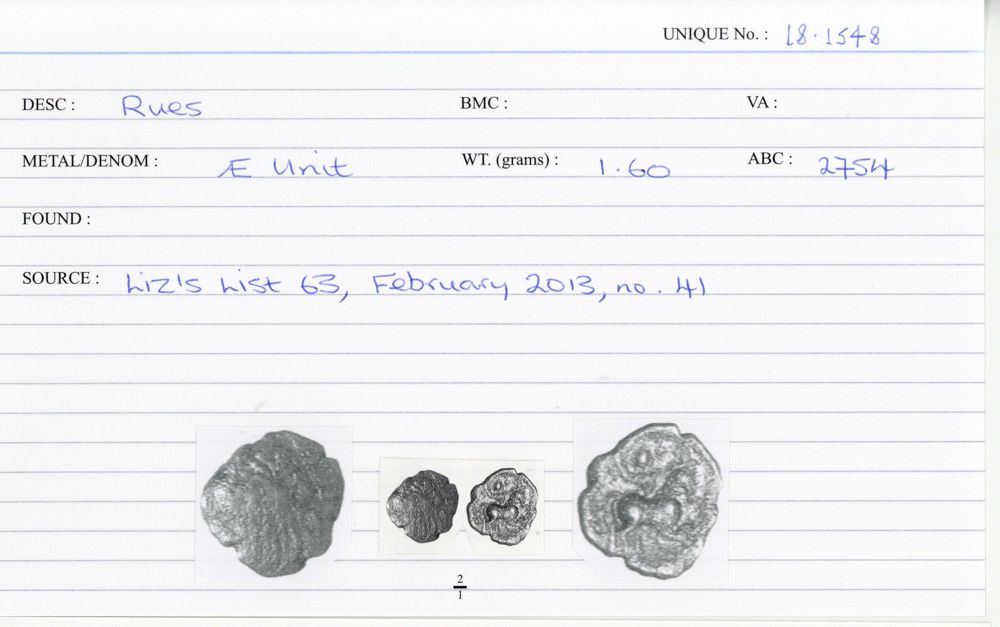 UNIQUE No. : 18.1548
DESC : Rues BMC : VA :
METAL/DENOM : Æ Unit WT. (grams) : 1.60 ABC : 2754
FOUND :
SOURCE : Liz's List 63, February 2013, no. 41
2
1